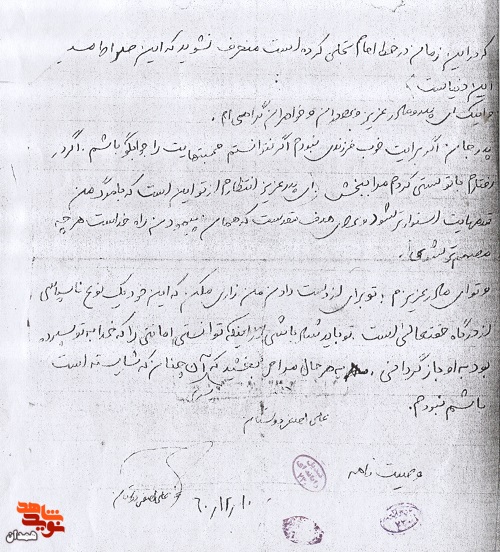 که در این زمان در خط امام تجلی کرده است منحرف نشوید که این صراط
این دنیاست
و اینک ای پدر و مادر عزیز و برادران و خواهران گرامی ام.
پدر جان اگر برایت خوب فرزندی نبودم اگر نتوانستم محبتهایت را جوابگو باشم. اگر در
احترام با تو سستی کردم مرا ببخش ای پدر عزیز انتظارم از تو این است که با مرگ من
استوارتر شود و برای هدف مقدست که همان پیمودن راه خداست هر چه
مصمم تر شوی.
و تو ای مادر عزیزم: تو برای از دست دادن من زاری مکن. که این خود یک نوع ناسپاسی
از درگاه حقتعالی است. تو باید شاد باشی از اینکه توانستی امانتی را که خدا به تو سپرده
بود به او باز گردانی. به هر حال مرا ببخشید که آن چنان که شایسته است
باشم نبودم.
علی اصغر
وصیت نامه
علی اصغر
۶۰/۱۲/۱۰
نوید شاهد
همدان